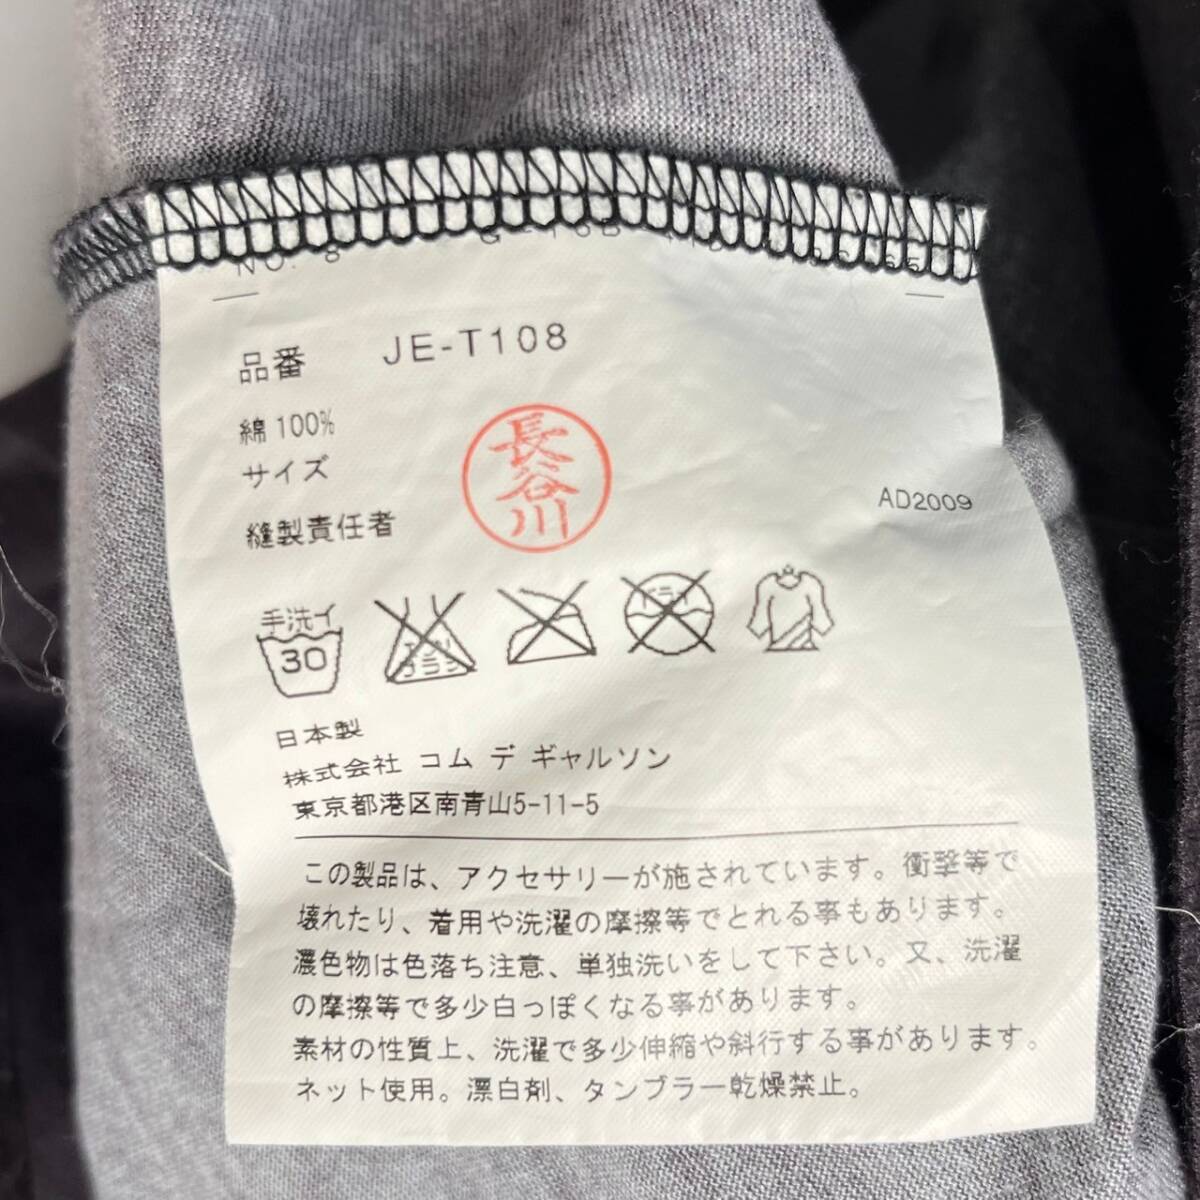 品番 JE-T108
綿 100%
サイズ
縫製責任者
長谷川
AD2009
手洗イ
30
エンソ
サラシ
ドライ
日本製
株式会社 コム デ ギャルソン
東京都港区南青山5-11-5
この製品は、アクセサリーが施されています。衝撃等で
壊れたり、着用や洗濯の摩擦等でとれる事もあります。
濃色物は色落ち注意、単独洗いをして下さい。又、洗濯
の摩擦等で多少白っぽくなる事があります。
素材の性質上、洗濯で多少伸縮や斜行する事があります。
ネット使用。漂白剤、タンブラー乾燥禁止。